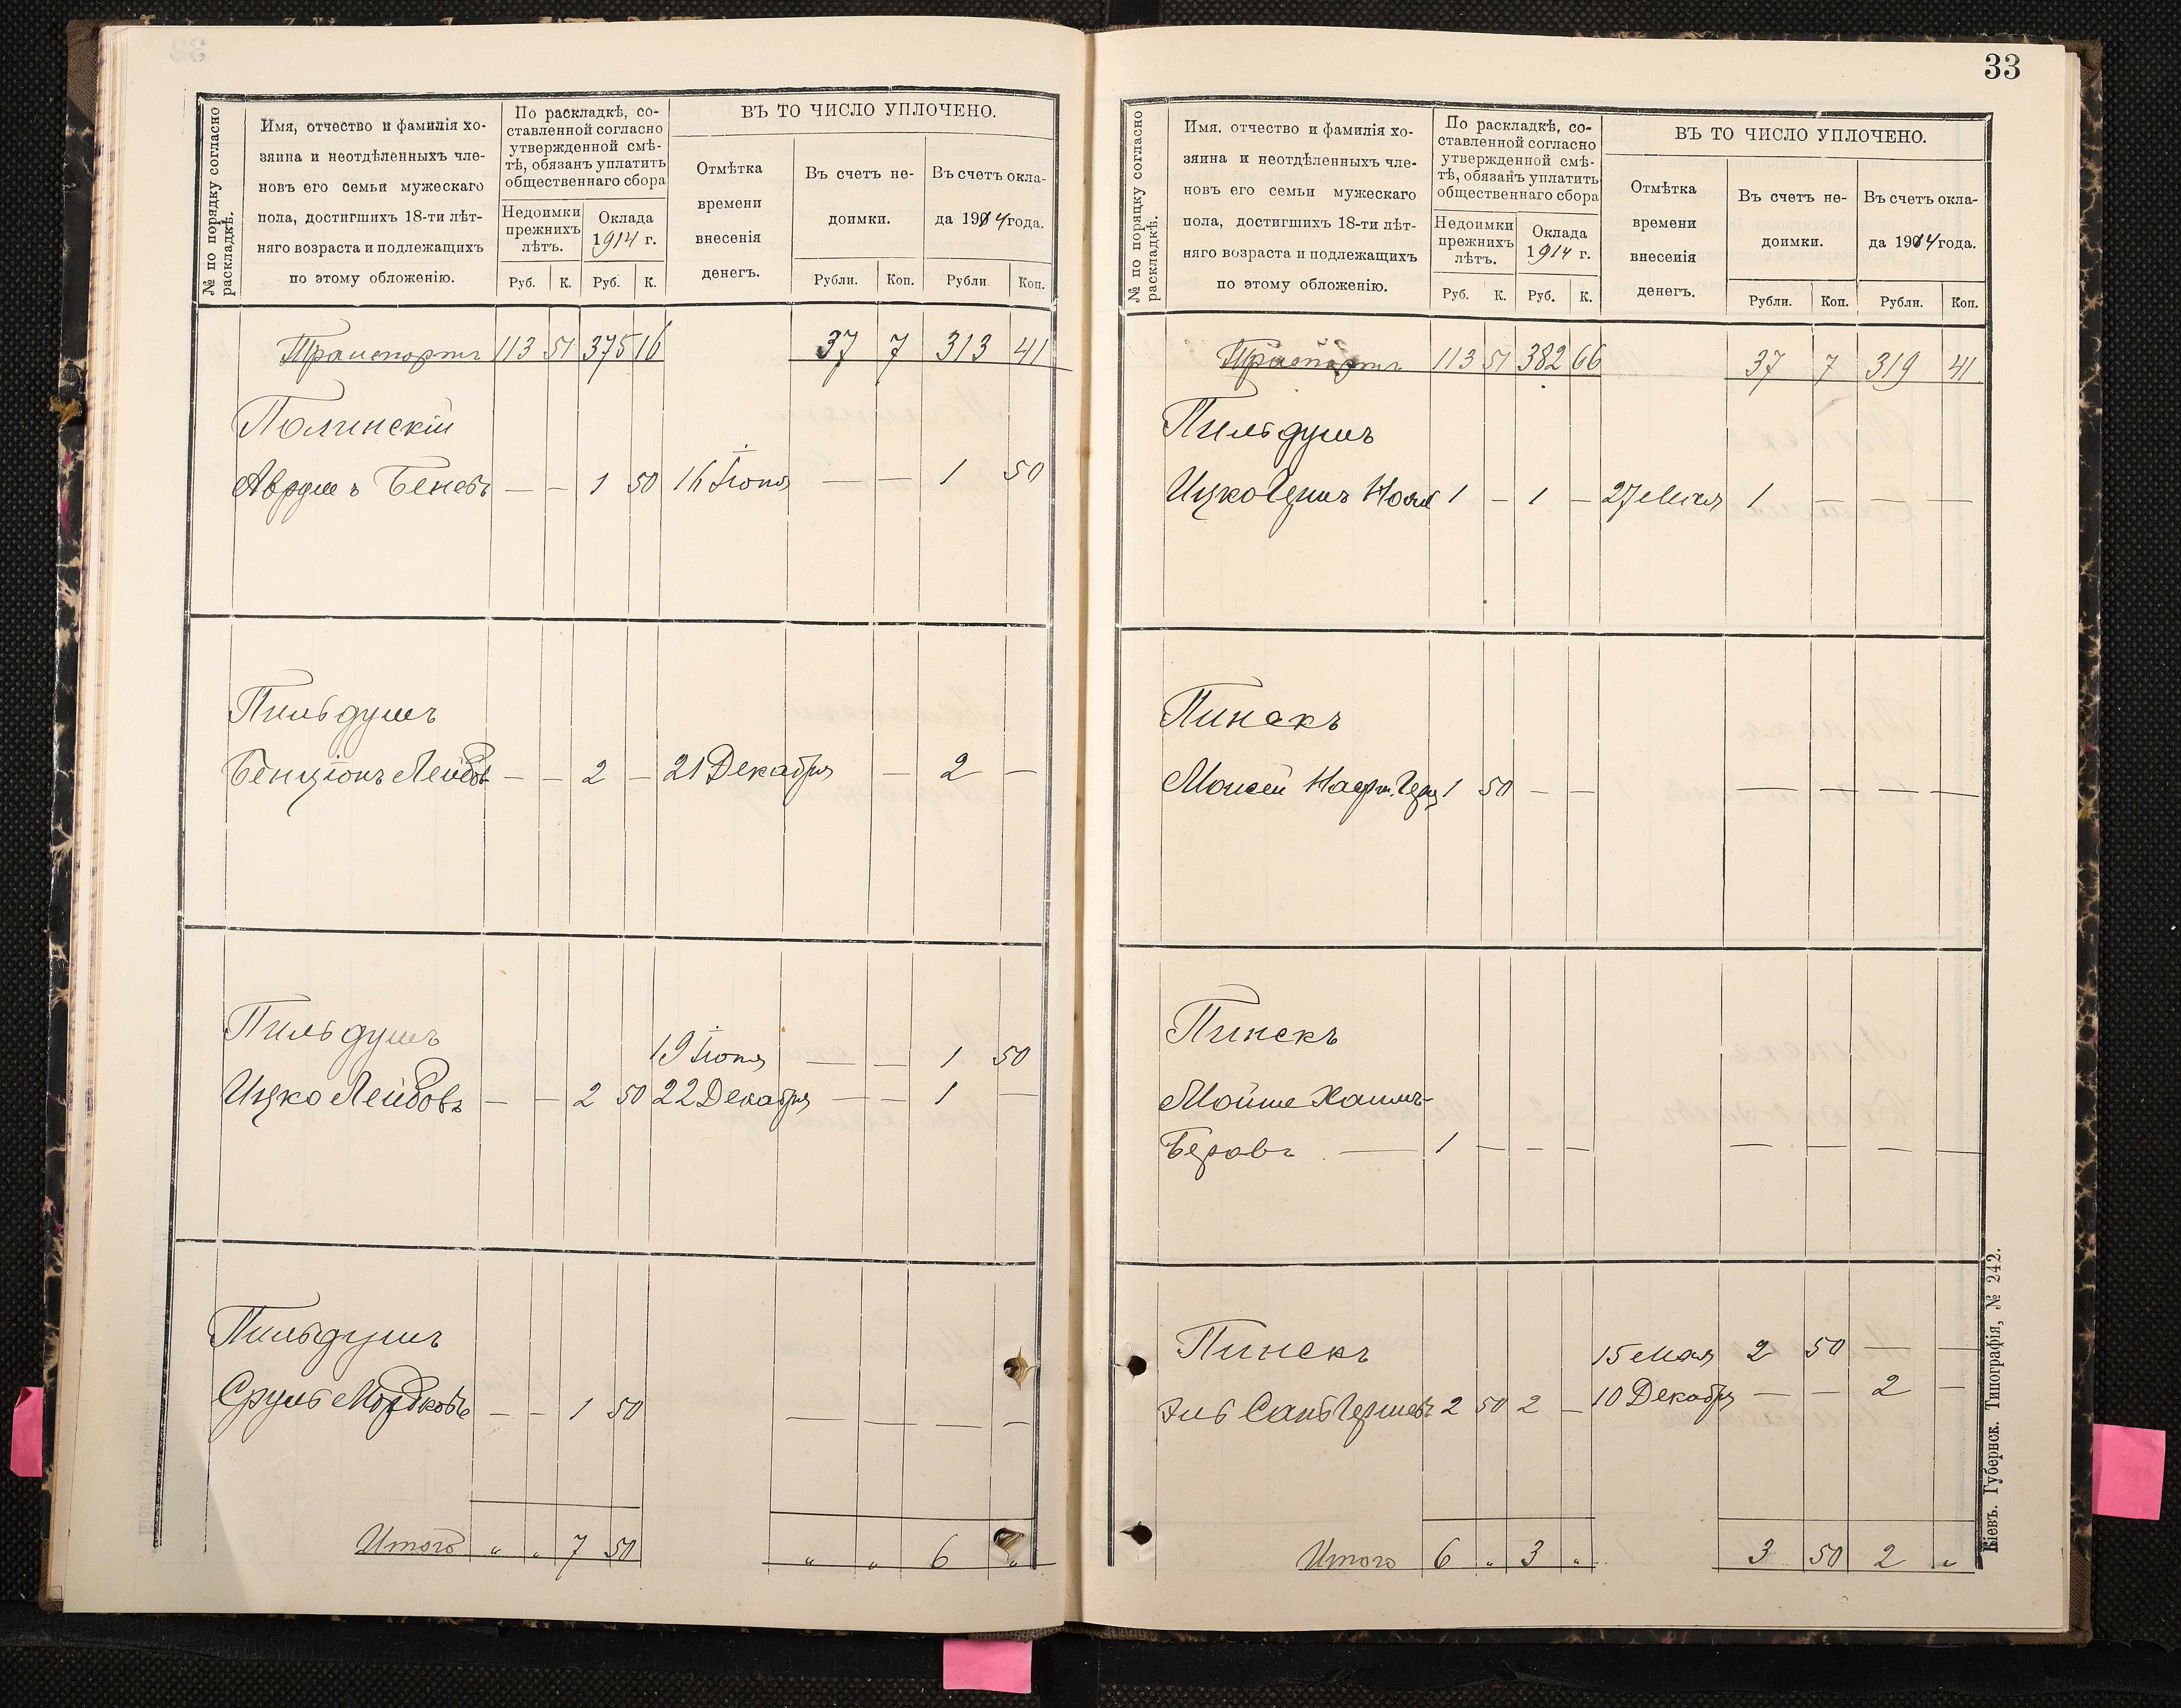 33
№ по порядку согласно раскладкѣ.
Имя, отчество и фамилія хо-
зяина и неотдѣленныхъ чле-
новъ его семьи мужескаго
пола, достигшихъ 18-ти лѣт-
няго возраста и подлежащихъ
по этому обложенію.
По раскладкѣ, со-
ставленной согласно
утвержденной смѣ-
тѣ, обязанъ уплатить
общественнаго сбора
Недоимки
прежнихъ
лѣтъ.
Оклада
1914 г.
Руб. К. Руб. К.
ВЪ ТО ЧИСЛО УПЛОЧЕНО.
Отмѣтка
времени
внесенія
денегъ.
Въ счетъ не-
доимки.
Въ счетъ окла-
да 1914 года.
Рубли. Коп. Рубли Коп.
Транспортъ 113 51 375 16 37 7 313 41
Полинскій
Аврумъ Беневъ — — 1 50 16 Іюня — — 1 50
Пильдушъ
Бенціонъ Лейбов — — 2 — 21 Декабря — 2 —
Пильдушъ
19 Іюня — — 1 50
Ицко Лейбовъ — — 2 50 22 Декабря — — 1 —
Пильдушъ
Сруль Мордковъ — — 1 50 — — — —
Итого „ „ 7 50 „ „ 6 „
№ по порядку согласно раскладкѣ.
Имя. отчество и фамилія хо-
зяина и неотдѣленныхъ чле-
новъ его семьи мужескаго
пола, достигшихъ 18-ти лѣт-
няго возраста и подлежащихъ
по этому обложенію.
По раскладкѣ, со-
ставленной согласно
утвержденной смѣ-
тѣ, обязанъ уплатить
общественнаго сбора
Недоимки
прежнихъ
лѣтъ.
Оклада
1914 г.
Руб. К. Руб. К.
ВЪ ТО ЧИСЛО УПЛОЧЕНО.
Отмѣтка
времени
внесенія
денегъ.
Въ счетъ не-
доимки.
Въ счетъ окла-
да 1914 года.
Рубли. Коп. Рубли. Коп.
Транспортъ 113 51 382 66 37 7 319 41
Пильдушъ
Ицко Гершъ 1 — 1 — 27 Мая 1 — — —
Пинскъ
Моисей 1 50 — — — — — —
Пинскъ
Мойше Хаимъ-
Беровъ — 1 — — — — — — —
Пинскъ 15 Мая 2 50 — —
Гершевъ 2 50 2 — 10 Декабря — — 2 —
Итого 6 „ 3 „ 3 50 2 „
Кіевъ. Губернск. Типографія, № 242.